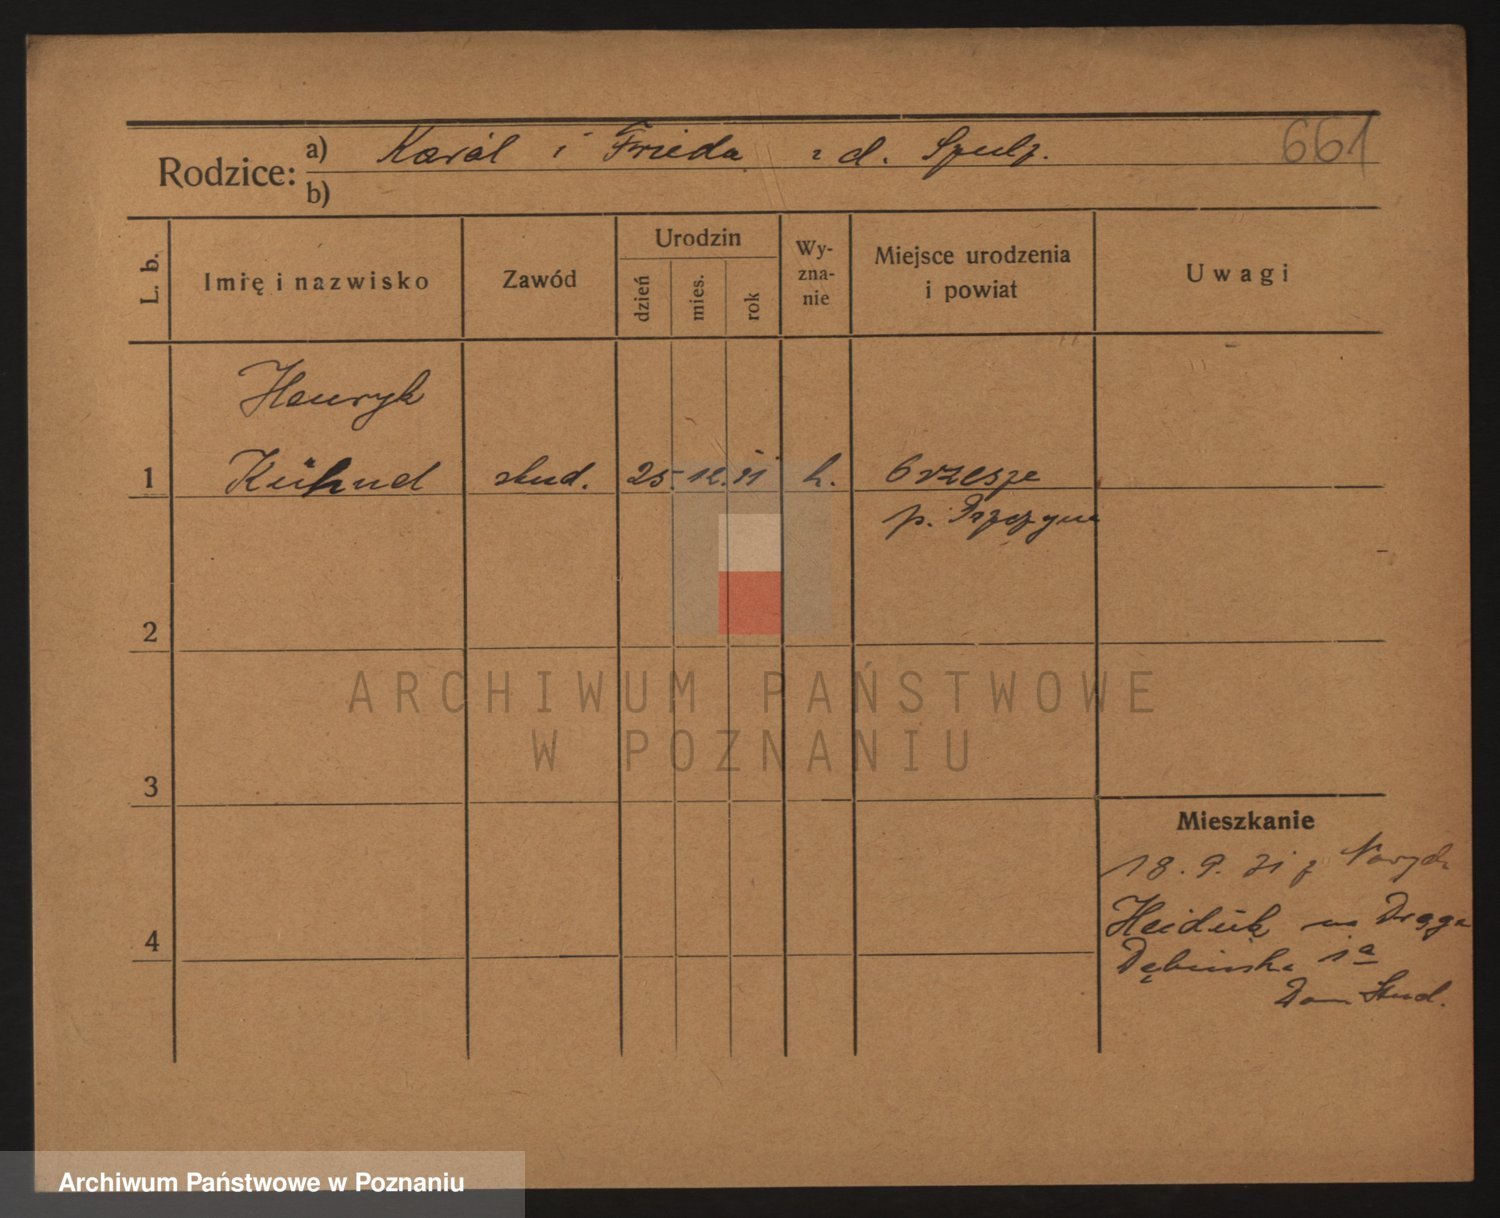 661
Rodzice: a) Karol i Frieda z d. Szulz.
b)
L. b.
Imię i nazwisko
Zawód
Urodzin
dzień
mies.
rok
Wy-
zna-
nie
Miejsce urodzenia
i powiat
Uwagi
Henryk
1 Kühnd stud. 25. 12. 11 k. Orzesze
p. Pszczyna
2
ARCHIWUM PAŃSTWOWE
W POZNANIU
3
Mieszkanie
18. 9. 31 z
4
Heiduk na Droga
Dębińska 1a
Dom Stud.
Archiwum Państwowe w Poznaniu